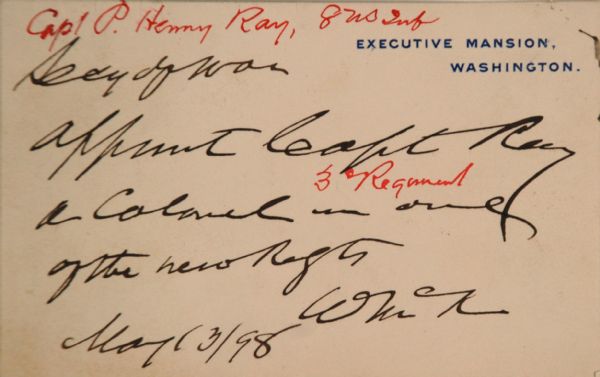 Capt P. Henry Ray, 8 US Inf
EXECUTIVE MANSION,
WASHINGTON.
Secy of War
Appoint Capt Ray
3d Regiment
a Colonel in one
of the new Regts
WMcK
May 13/98